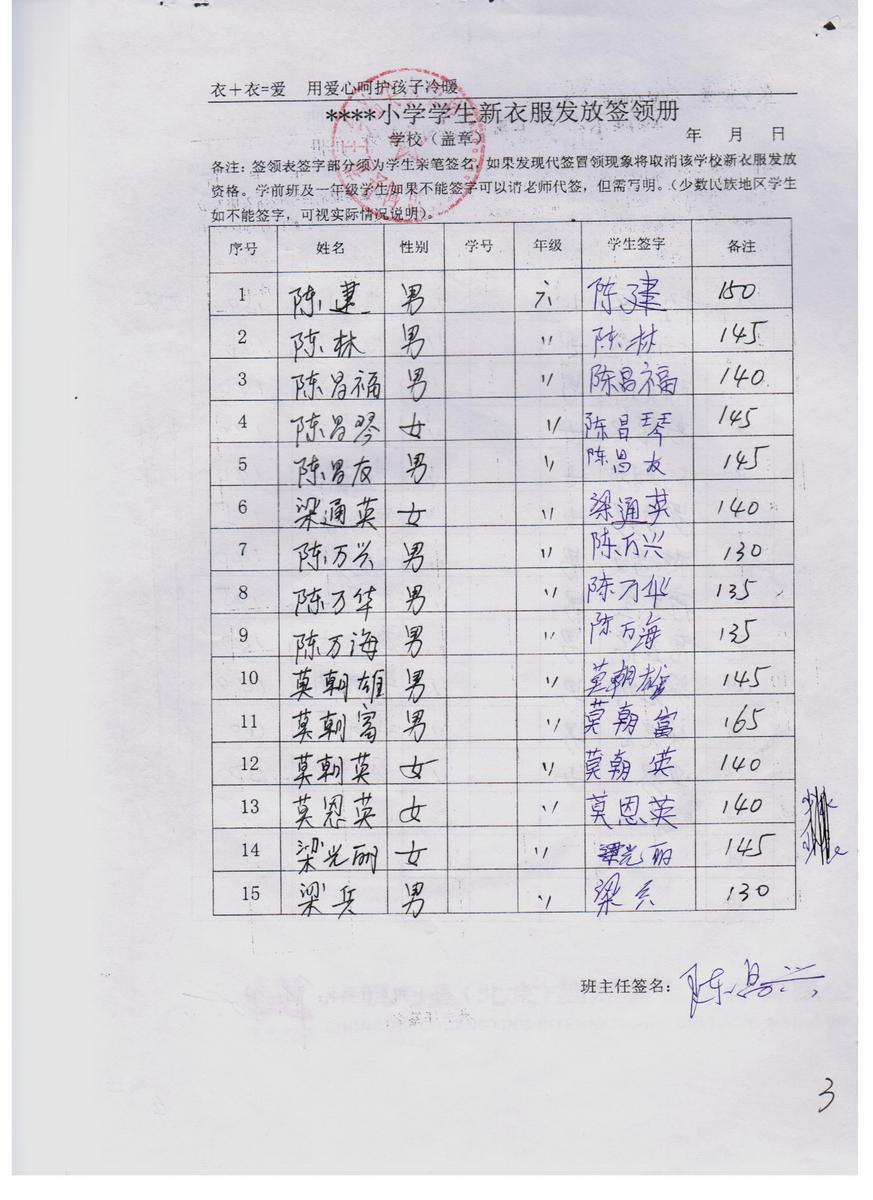 衣+衣=爱 用爱心呵护孩子冷暖
****小学学生新衣服发放签领册
学校（盖章） 年 月 日
备注：签领表签字部分须为学生亲笔签名，如果发现代签冒领现象将取消该学校新衣服发放
资格。学前班及一年级学生如果不能签字可以请老师代签，但需写明。（少数民族地区学生
如不能签字，可视实际情况说明）。
序号 姓名 性别 学号 年级 学生签字 备注
1 陈建 男 六 陈建 150
2 陈林 男 〃 陈林 145
3 陈昌福 男 〃 陈昌福 140
4 陈昌琴 女 〃 陈昌琴 145
5 陈昌友 男 〃 陈昌友 145
6 梁通英 女 〃 梁通英 140
7 陈万兴 男 〃 陈万兴 130
8 陈万华 男 〃 陈万华 135
9 陈万海 男 〃 陈万海 135
10 莫朝雄 男 〃 莫朝雄 145
11 莫朝富 男 〃 莫朝富 165
12 莫朝英 女 〃 莫朝英 140
13 莫恩英 女 〃 莫恩英 140
14 梁光丽 女 〃 梁光丽 145
15 梁兵 男 〃 梁兵 130
班主任签名：陈昌兴
3